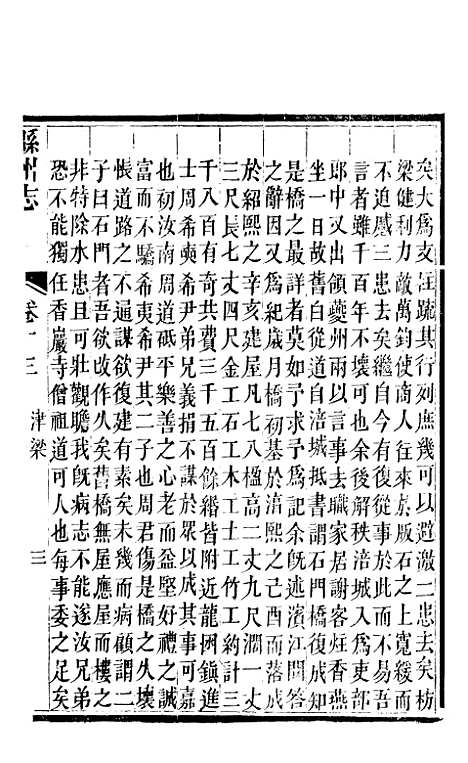 矣大爲支汪疏其行列庶幾可以避激二患去矣枋
梁健利力敵萬鈞使商人往來亰版石之上寬綏而
不迫感三患去矣繼自今有復從事於此而不易吾
言者雖千百年不壞可也余後解秩涪城入爲吏部
郎中又出領夔州兩以言事去職家居謝客炷香燕
坐一日故舊白從道自涪城抵書謂石門橋復成知
是橋之最詳者莫如予求予爲記余旣述濱江問答
之辭因又爲紀歲月橋初基於淯熙之己酉而落成
於紹熙之辛亥建屋凡七八楹高二丈九尺濶一丈
三尺長七丈四尺金工石工木工土工竹工約計三
千八百有奇共費三千五百餘緡皆附近龍挧鎮進
士周希奭希尹弟兄義捐不謀於眾以成其事可嘉
也初汝南周道砥平樂善之心老而益堅好禮之誠
富而不驕希夷希尹其二子也周君傷是橋之久壞
悵道路之不通謀欲復建有素矣未幾而病顧謂二
子曰石門者吾欲改作久矣舊橋無屋應屋而樓之
非特除水患且可壯觀瞻我旣病志不能遂汝兄弟
恐不能獨任香巖寺僧祖道可人也每事委之足矣
緜州志
卷十三
津梁
三